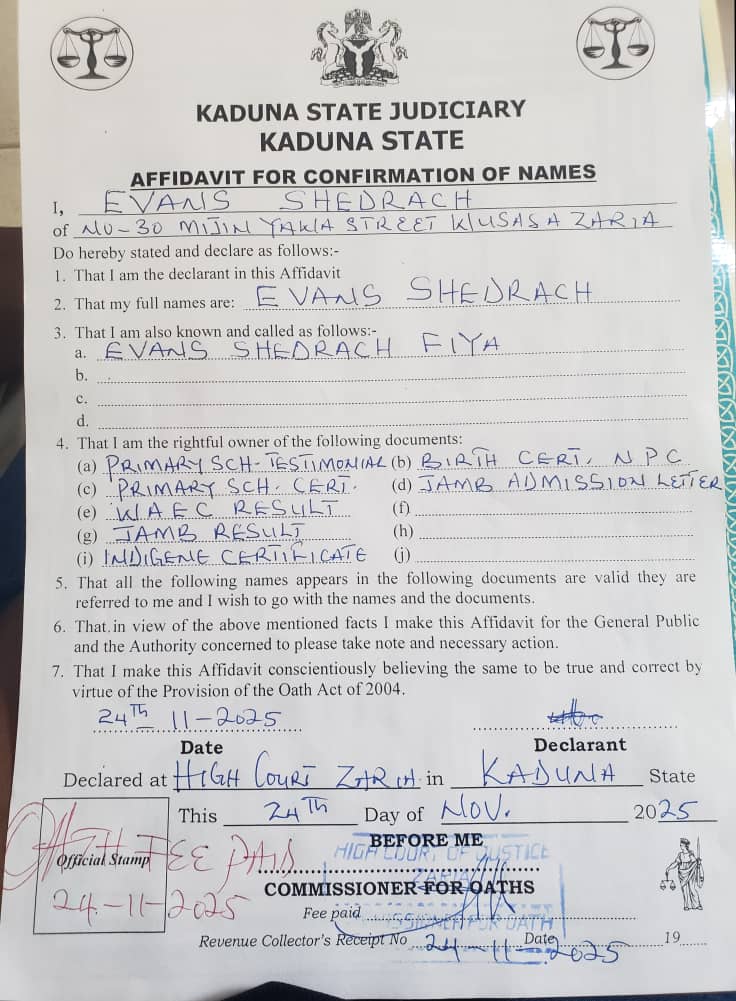 KADUNA STATE JUDICIARY
KADUNA STATE
AFFIDAVIT FOR CONFIRMATION OF NAMES
I, EVANS SHEDRACH
of NO-30 MIJIN YAWA STREET WUSASA ZARIA
Do hereby stated and declare as follows:-
1. That I am the declarant in this Affidavit
2. That my full names are: EVANS SHEDRACH
3. That I am also known and called as follows:-
a. EVANS SHEDRACH FIYA
b.
c.
d.
4. That I am the rightful owner of the following documents:
(a) PRIMARY SCH-TESTIMONIAL (b) BIRTH CERT. NPC
(c) PRIMARY SCH. CERT. (d) JAMB ADMISSION LETTER
(e) WAEC RESULT (f)
(g) JAMB RESULT (h)
(i) INDIGENE CERTIFICATE (j)
5. That all the following names appears in the following documents are valid they are
referred to me and I wish to go with the names and the documents.
6. That, in view of the above mentioned facts I make this Affidavit for the General Public
and the Authority concerned to please take note and necessary action.
7. That I make this Affidavit conscientiously believing the same to be true and correct by
virtue of the Provision of the Oath Act of 2004.
24TH 11-2025
Date Declarant
Declared at HIGH COURT ZARIA in KADUNA State
This 24TH Day of NOV. 2025
BEFORE ME
HIGH COURT OF JUSTICE
ZARIA
Official Stamp
OATH FEE PAID
24-11-2025
COMMISSIONER FOR OATHS
Fee paid
FOR OATH
Revenue Collector's Receipt No Date 19
24-11-2025